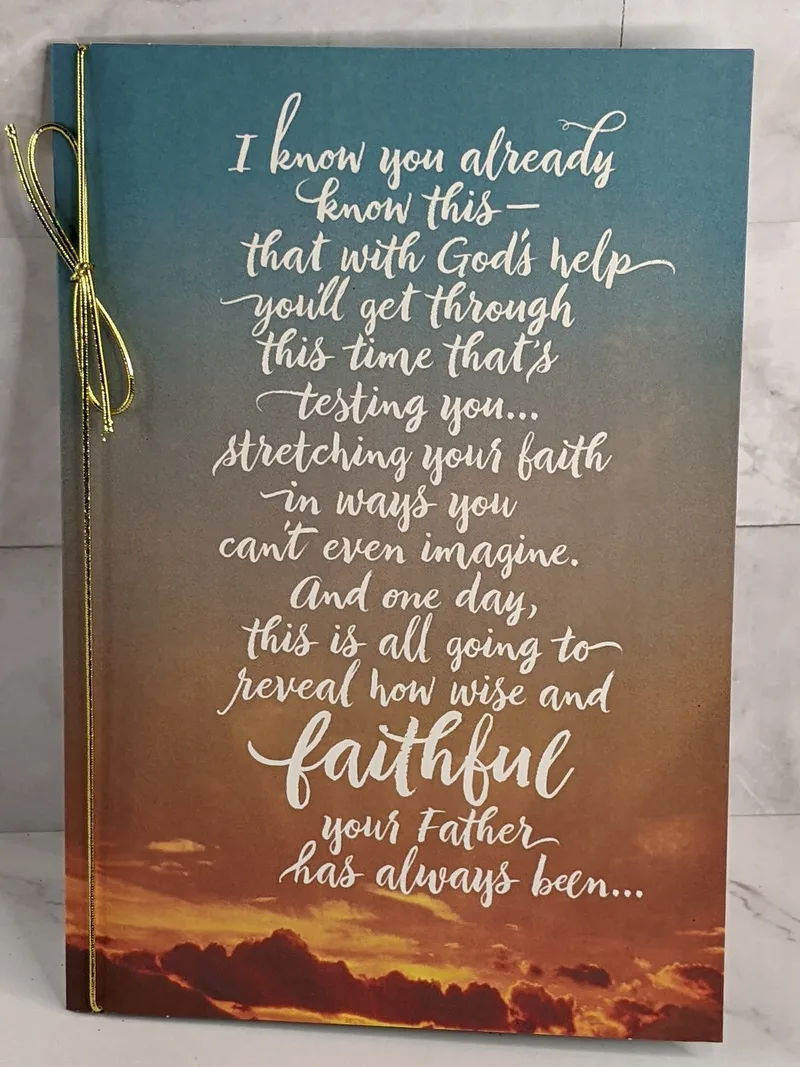 I know you already
know this—
that with God's help
you'll get through
this time that's
testing you...
stretching your faith
in ways you
can't even imagine.
And one day,
this is all going to
reveal how wise and
faithful
your Father
has always been...